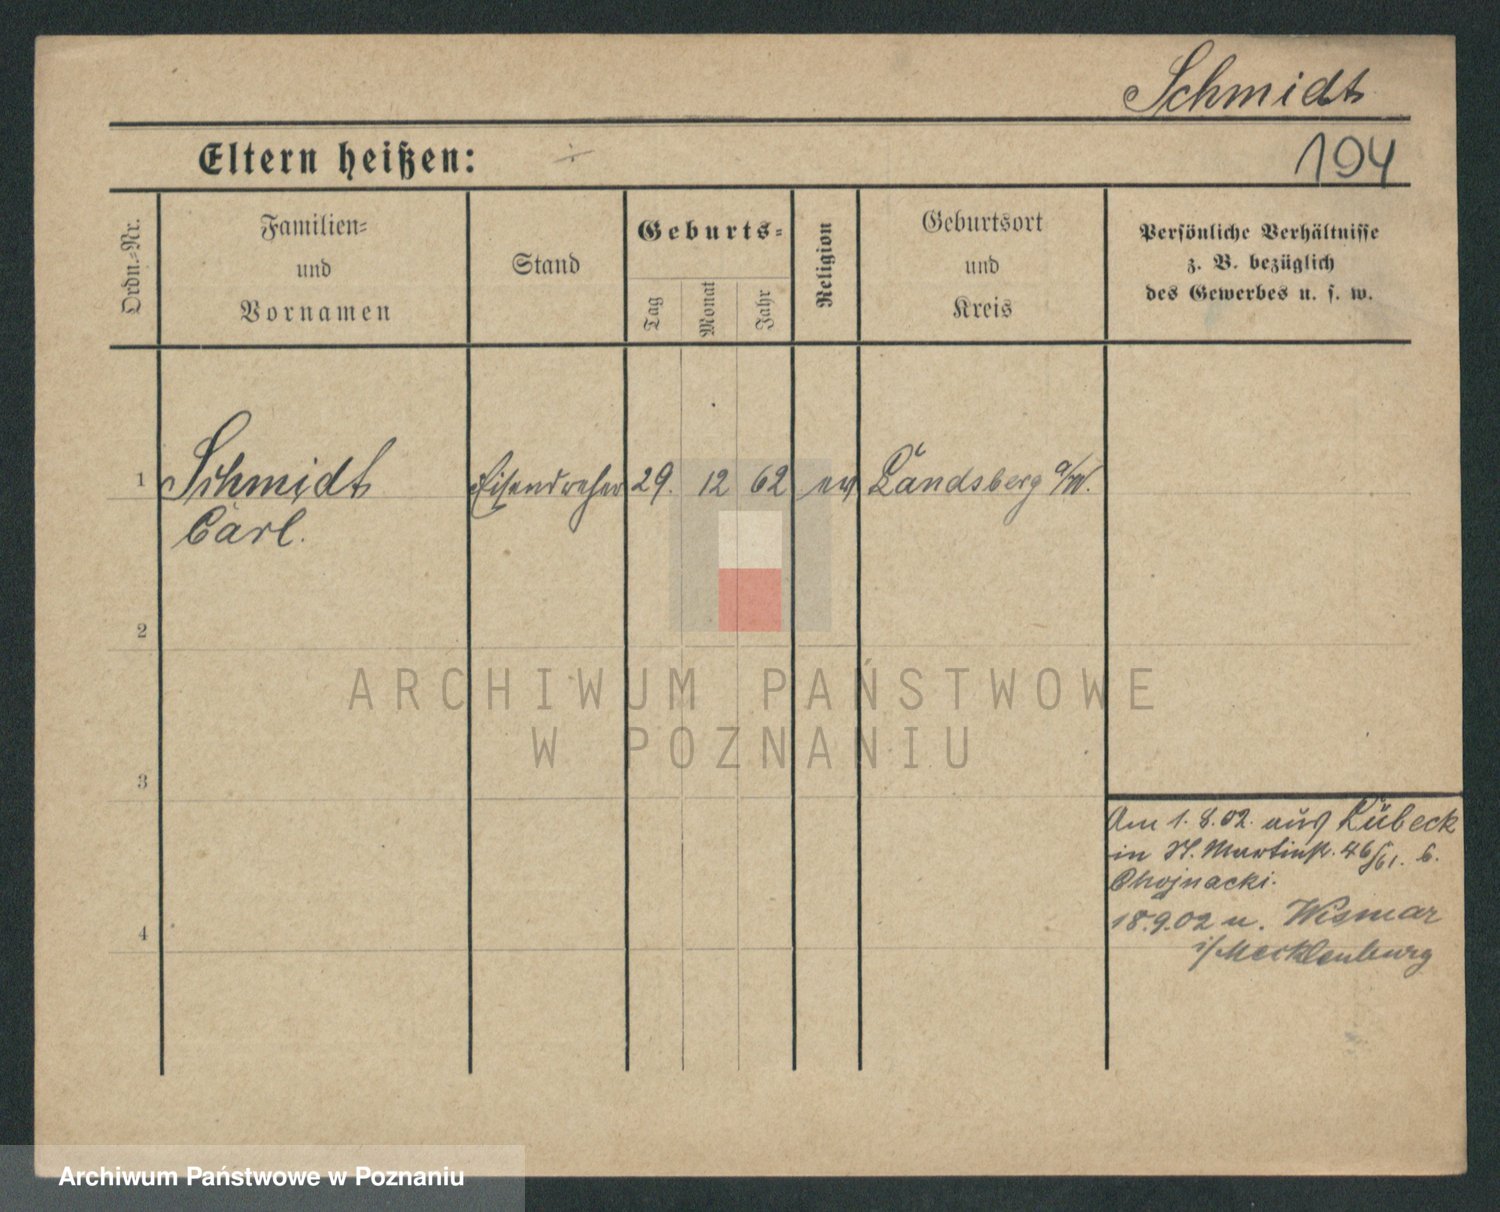 Schmidt
Eltern heißen: ÷
194
Ordn.-Nr.
Familien-
und
Vornamen
Stand
Geburts-
Tag
Monat
Jahr
Religion
Geburtsort
und
Kreis
Persönliche Verhältnisse
z. B. bezüglich
des Gewerbes u. s. w.
1 Schmidt Eisendreher 29. 12 62 ev Landsberg a/W.
Carl.
2
3
4
Am 1. 8. 02. aus Lübeck
in St. Martinstr. 46/61. b.
Chojnacki.
18.9.02 n. Wismar
i/Mecklenburg
ARCHIWUM PAŃSTWOWE
W POZNANIU
Archiwum Państwowe w Poznaniu